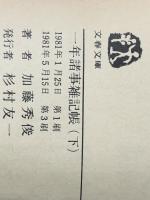 文春文庫
一年諸事雑記帳(下)
1981年1月25日 第1刷
1981年5月15日 第3刷
著者 加藤秀俊
発行者 杉村友一